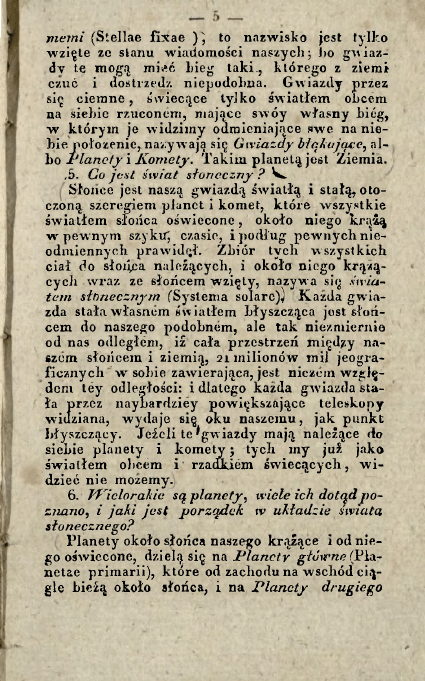 — 5 —
memi (Stellae fixae ); to nazwisko jest tylko
wzięte ze stanu wiadomości naszych; bo gwiaz-
dy te mogą mieć bieg taki, którego z ziemi
czuć i dostrzedz niepodobna. Gwiazdy przez
się ciemne, świecące tylko światłem obcem
na siebie rzuconém, mające swóy własny bieg,
w którym je widzimy odmieniające swe na nie-
bie położenie, nazywają się Gwiazdy błąkające, al-
bo Planety i Komety. Takim planetą jest Ziemia.
5. Co jest świat słoneczny?
Słońce jest naszą gwiazdą światłą i stałą, oto-
czoną szeregiem planet i komet, które wszystkie
światłem słońca oświecone, około niego krążą
w pewnym szyku, czasie, i podług pewnych nie-
odmiennych prawideł. Zbiór tych wszystkich
ciał do słońca należących, i około niego krążą-
cych wraz ze słońcem wzięty, nazywa się świa-
tem słonecznym (Systema solare). Każda gwia-
zda stała własném światłem błyszcząca jest słoń-
cem do naszego podobném, ale tak niezmiernie
od nas odległém, iż cała przestrzeń między na-
szém słońcem i ziemią, 21 milionów mil jeogra-
ficznych w sobie zawierająca, jest niczém wzglę-
dem téy odległości: i dlatego każda gwiazda sta-
ła przez naybardziéy powiększające teleskopy
widziana, wydaje się oku naszemu, jak punkt
błyszczący. Jeżeli te gwiazdy mają należące do
siebie planety i komety; tych my już jako
światłem obcem i rzadkiém świecących, wi-
dzieć nie możemy.
6. Wielorakie są planety, wiele ich dotąd po-
znano, i jaki jest porządek w układzie świata
słonecznego?
Planety około słońca naszego krążące i od nie-
go oświecone, dzielą się na Planety główne (Pla-
netae primarii), które od zachodu na wschód cią-
gle bieżą około słońca, i na Planety drugiego